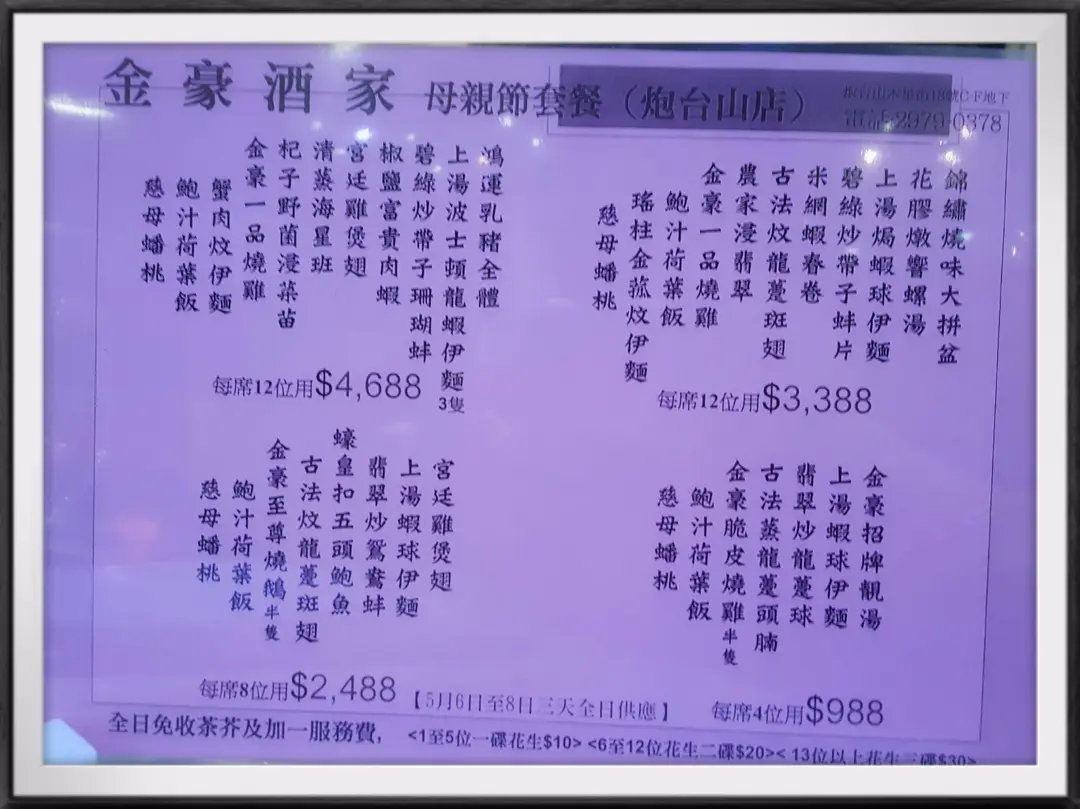 金豪酒家 母親節套餐（炮台山店）
電話:2979-0378
錦繡燒味大拼盆
花膠燉響螺湯
上湯焗蝦球伊麵
碧綠炒帶子蚌片
米網蝦春卷
古法炆龍躉斑翅
農家浸翡翠
金豪一品燒雞
鮑汁荷葉飯
瑤柱金菰炆伊麵
慈母蟠桃
每席12位用$3,388
鴻運乳豬全體
上湯波士頓龍蝦伊麵3隻
碧綠炒帶子珊瑚蚌
椒鹽富貴肉蝦
宮廷雞煲翅
清蒸海星斑
杞子野菌浸菜苗
金豪一品燒雞
蟹肉炆伊麵
鮑汁荷葉飯
慈母蟠桃
每席12位用$4,688
金豪招牌靚湯
上湯蝦球伊麵
翡翠炒龍躉球
古法蒸龍躉頭腩
金豪脆皮燒雞半隻
鮑汁荷葉飯
慈母蟠桃
每席4位用$988
宮廷雞煲翅
上湯蝦球伊麵
翡翠炒鴛鴦蚌
蠔皇扣五頭鮑魚
古法炆龍躉斑翅
金豪至尊燒鵝半隻
鮑汁荷葉飯
慈母蟠桃
每席8位用$2,488
【5月6日至8日三天全日供應】
全日免收茶芥及加一服務費, <1至5位一碟花生$10> <6至12位花生二碟$20>< 13位以上花生三碟$30>